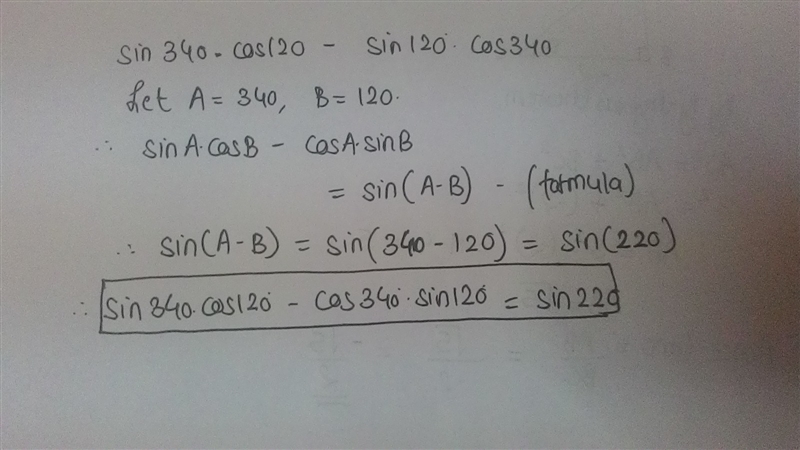 sin 340 · cos120 - sin 120 · cos340
Let A = 340, B = 120.
∴ sin A · cos B - cos A · sin B
= sin(A-B) - (formula)
∴ sin(A-B) = sin(340-120) = sin(220)
∴ sin 340 · cos120 - cos 340 · sin120 = sin 220